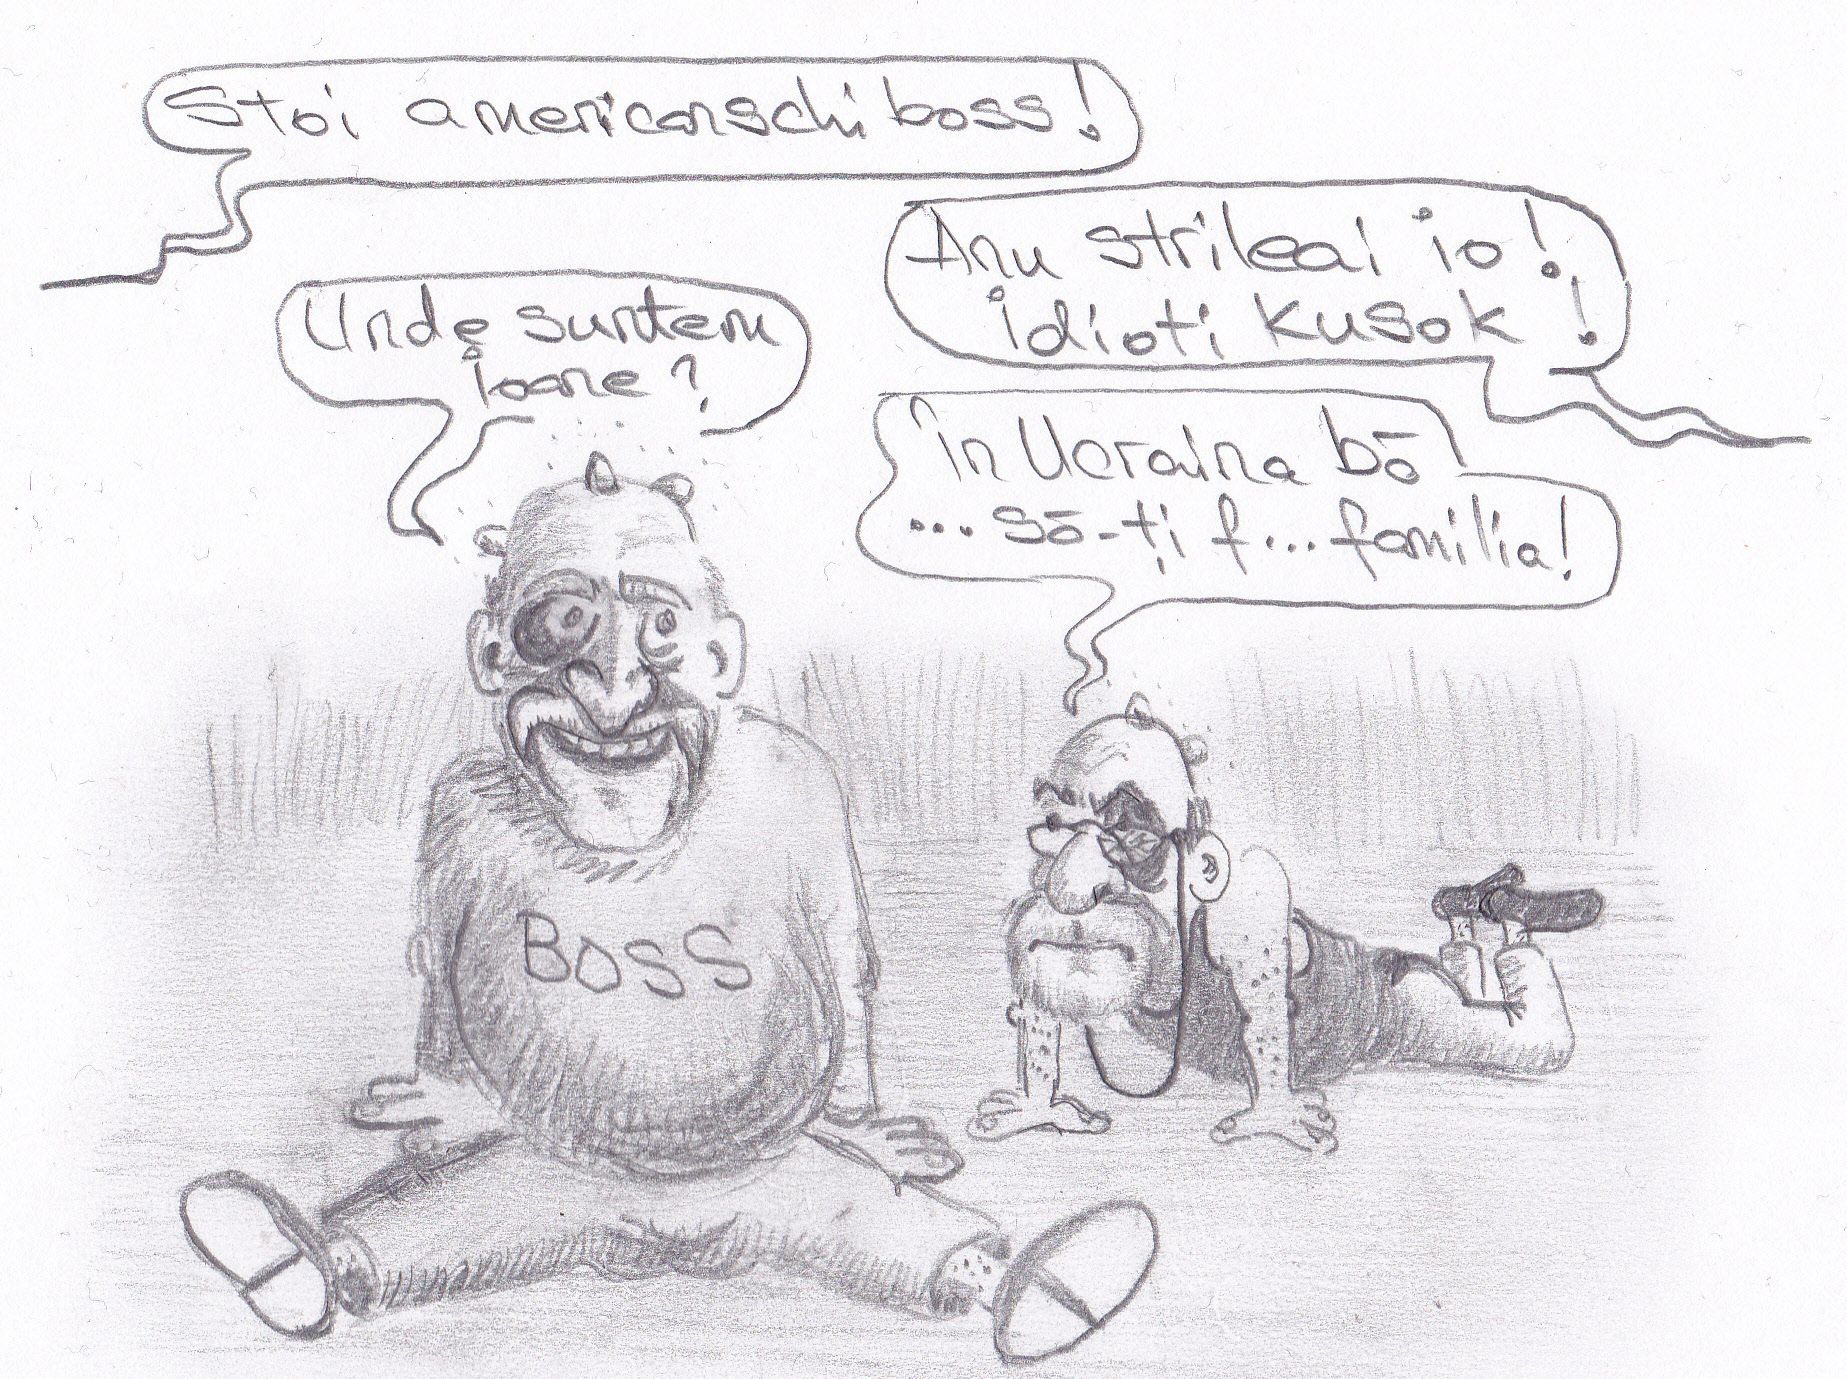 Stoi americanschi boss!
Anu strileai io!
idioti kusok!
Unde suntem
ioane?
În Ucraina bă
... să-ți f... familia!
BOSS